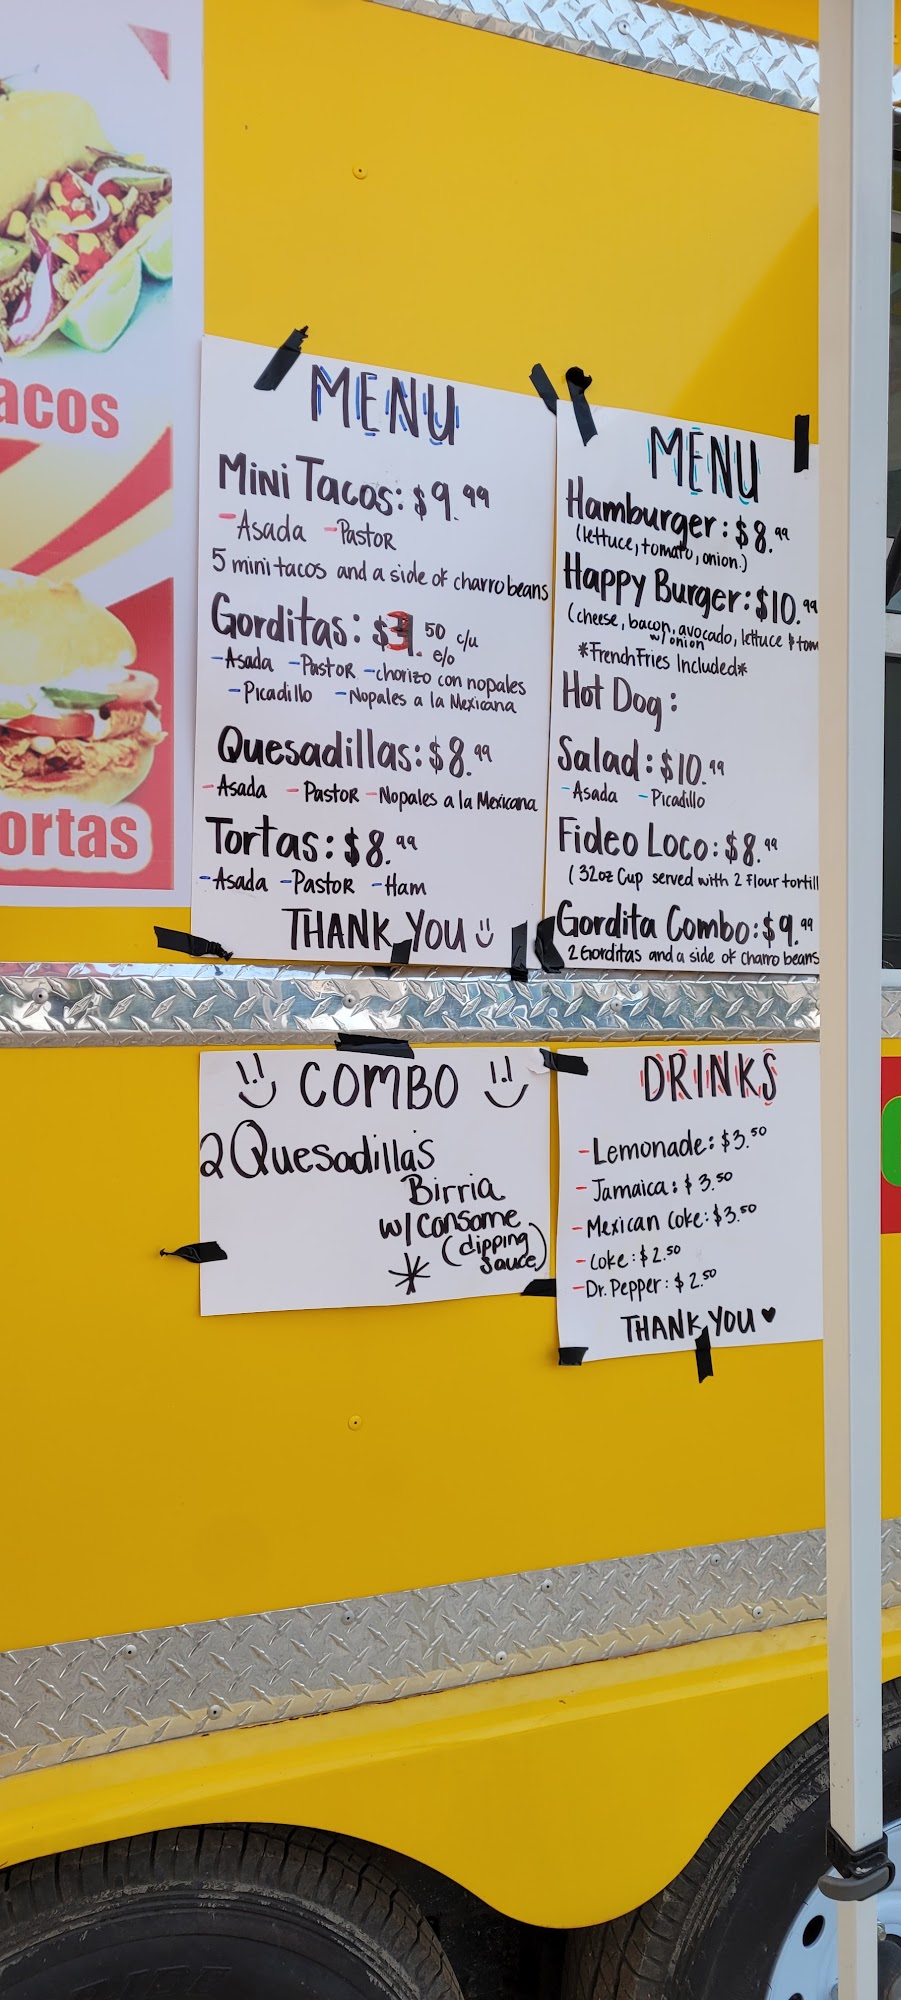 acos
ortas
MENU
Mini Tacos: $9.99
-Asada -Pastor
5 mini tacos and a side of charro beans
Gorditas: $3.50 c/u
e/o
-Asada -Pastor -chorizo con nopales
-Picadillo -Nopales a la Mexicana
Quesadillas: $8.99
-Asada -Pastor -Nopales a la Mexicana
Tortas: $8.99
-Asada -Pastor -Ham
THANK YOU
MENU
Hamburger: $8.99
(lettuce, tomato, onion.)
Happy Burger: $10.99
(cheese, bacon, avocado, lettuce & tom
w/onion
*French Fries Included*
Hot Dog:
Salad: $10.99
-Asada -Picadillo
Fideo Loco: $8.99
(32oz Cup served with 2 flour tortill
Gordita Combo: $9.99
2 Gorditas and a side of charro beans
COMBO
2 Quesadillas
Birria
w/ Consome
(dipping
sauce)
*
DRINKS
-Lemonade: $3.50
-Jamaica: $3.50
-Mexican Coke: $3.50
-Coke: $2.50
-Dr. Pepper: $2.50
THANK YOU ♥